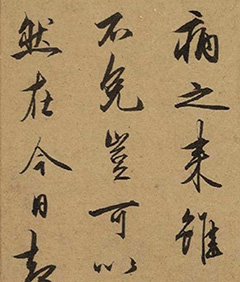 病之来雖
不免豈可以
然在今日